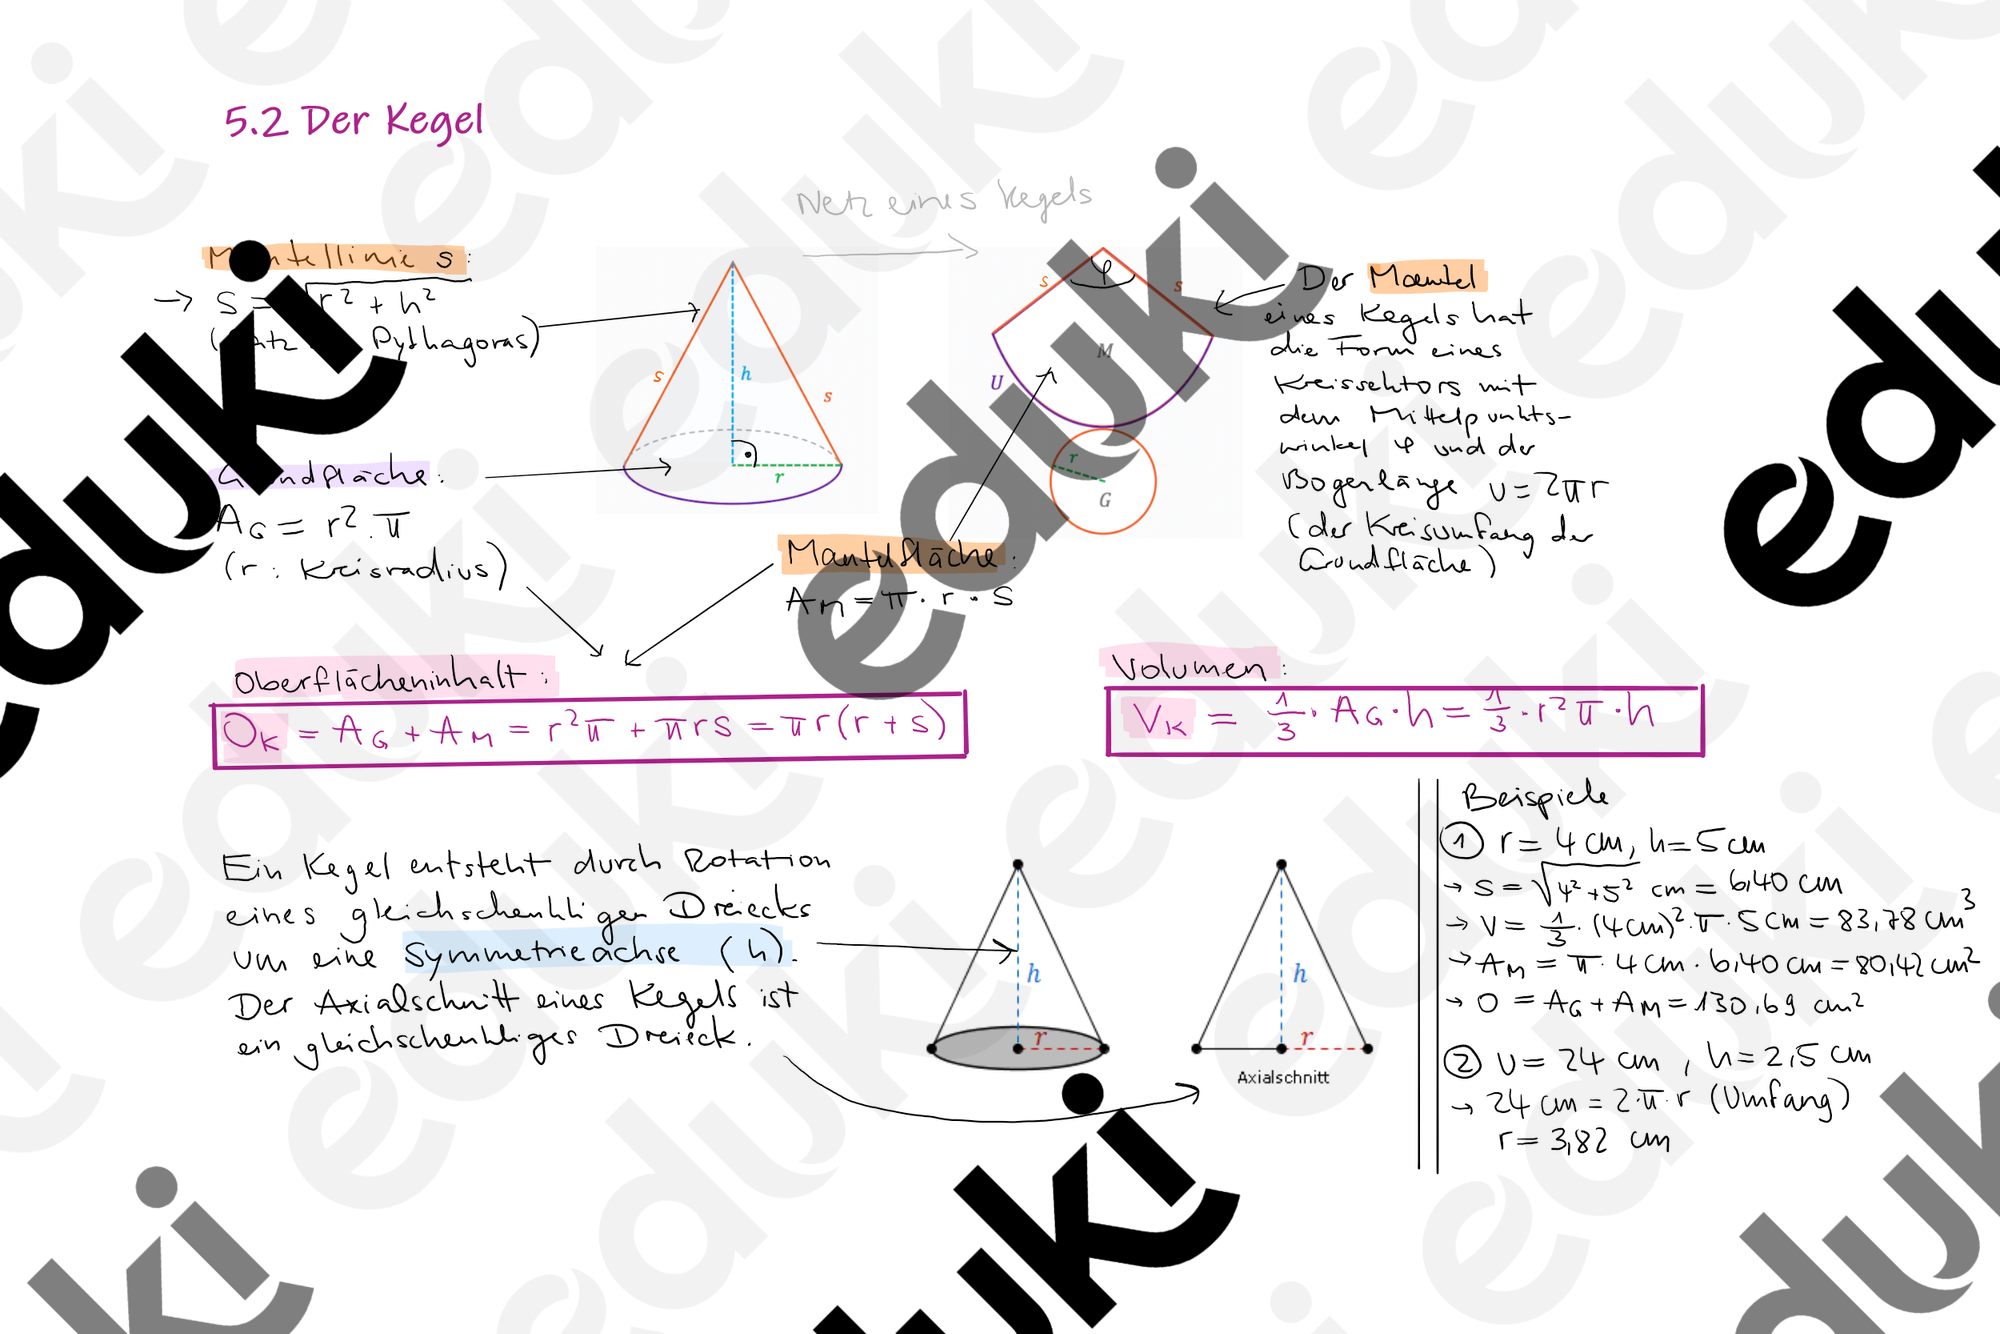 5.2 Der Kegel
Netz eines Kegels
Mantellinie s:
→ s = √r² + h²
(Satz Pythagoras)
s
h
s
r
s
φ
s
M
U
r
G
Der Mantel
eines Kegels hat
die Form eines
Kreissektors mit
dem Mittelpunkts-
winkel φ und der
Bogenlänge U = 2πr
(der Kreisumfang der
Grundfläche)
Grundfläche:
A_G = r² · π
(r: Kreisradius)
Mantelfläche:
A_M = π · r · s
Oberflächeninhalt:
O_K = A_G + A_M = r²π + πrs = πr(r + s)
Volumen:
V_K = 1/3 · A_G · h = 1/3 · r²π · h
Ein Kegel entsteht durch Rotation
eines gleichschenkligen Dreiecks
um eine Symmetrieachse (h).
Der Axialschnitt eines Kegels ist
ein gleichschenkliges Dreieck.
h
r
h
r
Axialschnitt
Beispiele
① r = 4 cm, h = 5 cm
→ s = √4² + 5² cm = 6,40 cm
→ V = 1/3 · (4cm)² · π · 5 cm = 83,78 cm³
→ A_M = π · 4 cm · 6,40 cm = 80,42 cm²
→ O = A_G + A_M = 130,69 cm²
② U = 24 cm, h = 2,5 cm
→ 24 cm = 2·π·r (Umfang)
r = 3,82 cm
eduki
eduki
eduki
eduki
eduki
eduki